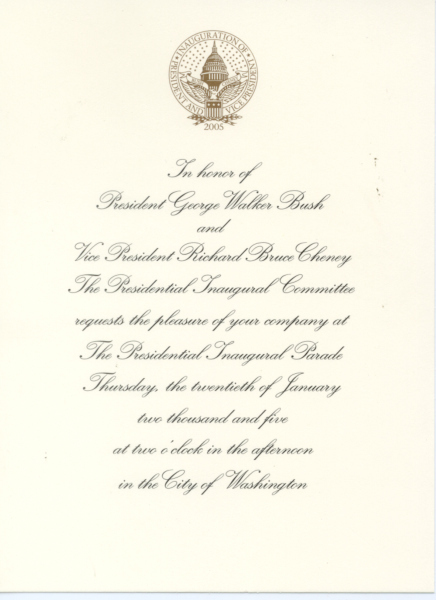 INAUGURATION OF
PRESIDENT AND VICE PRESIDENT
2005
In honor of
President George Walker Bush
and
Vice President Richard Bruce Cheney
The Presidential Inaugural Committee
requests the pleasure of your company at
The Presidential Inaugural Parade
Thursday, the twentieth of January
two thousand and five
at two o'clock in the afternoon
in the City of Washington